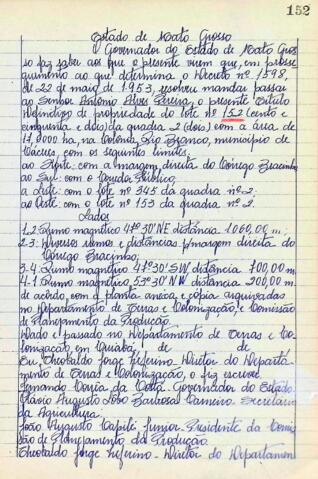 152
Estado de Mato Grosso
O Governador do Estado de Mato Gros-
so faz saber aos que o presente virem que, em prosse-
guimento ao que determina o Decreto nº 1598,
de 22 de maio de 1953, resolveu mandar passar
ao Senhor Antonio Alves Pereira, o presente Título
Definitivo de propriedade do lote nº 152 (cento e
cinquenta e dois) da quadra 2 (dois) com a área de
17,0000 ha, na Colonia Rio Branco, município de
Cáceres, com os seguintes limites:
ao Norte: com a margem direita do Córrego Bracinho
ao Sul: com o Corredor Público;
a Leste: com o lote nº 345 da quadra nº 2;
ao Oeste: com o lote nº 153 da quadra nº 2.
Lados
1.2: Rumo magnético 47º30'NE distância 1060,00 m;
2-3: Diversos rumos e distâncias p/margem direita do
Córrego Bracinho;
3-4: Rumo magnético 47º30'SW distância 700,00 m;
4-1: Rumo magnético 53º30'NW distância 200,00 m,
de acôrdo, com a planta anexa e cópia arquivadas
no Departamento de Terras e Colonização, e Comissão
de Planejamento da Produção.
Dado e passado no Departamento de Terras e Co-
lonização, em Cuiabá, de de
Eu, Theobaldo Jorge Zeferino Diretor do Departa-
mento de Terras e Colonização, o fiz escrever.
Fernando Corrêa da Costa - Governador do Estado
Clovio Augusto Lobo Barbosa Carneiro - Secretário
da Agricultura.
João Augusto Capilé Junior - Presidente da Comis-
são de Planejamento da Produção.
Theobaldo Jorge Zeferino - Diretor do Departamen-